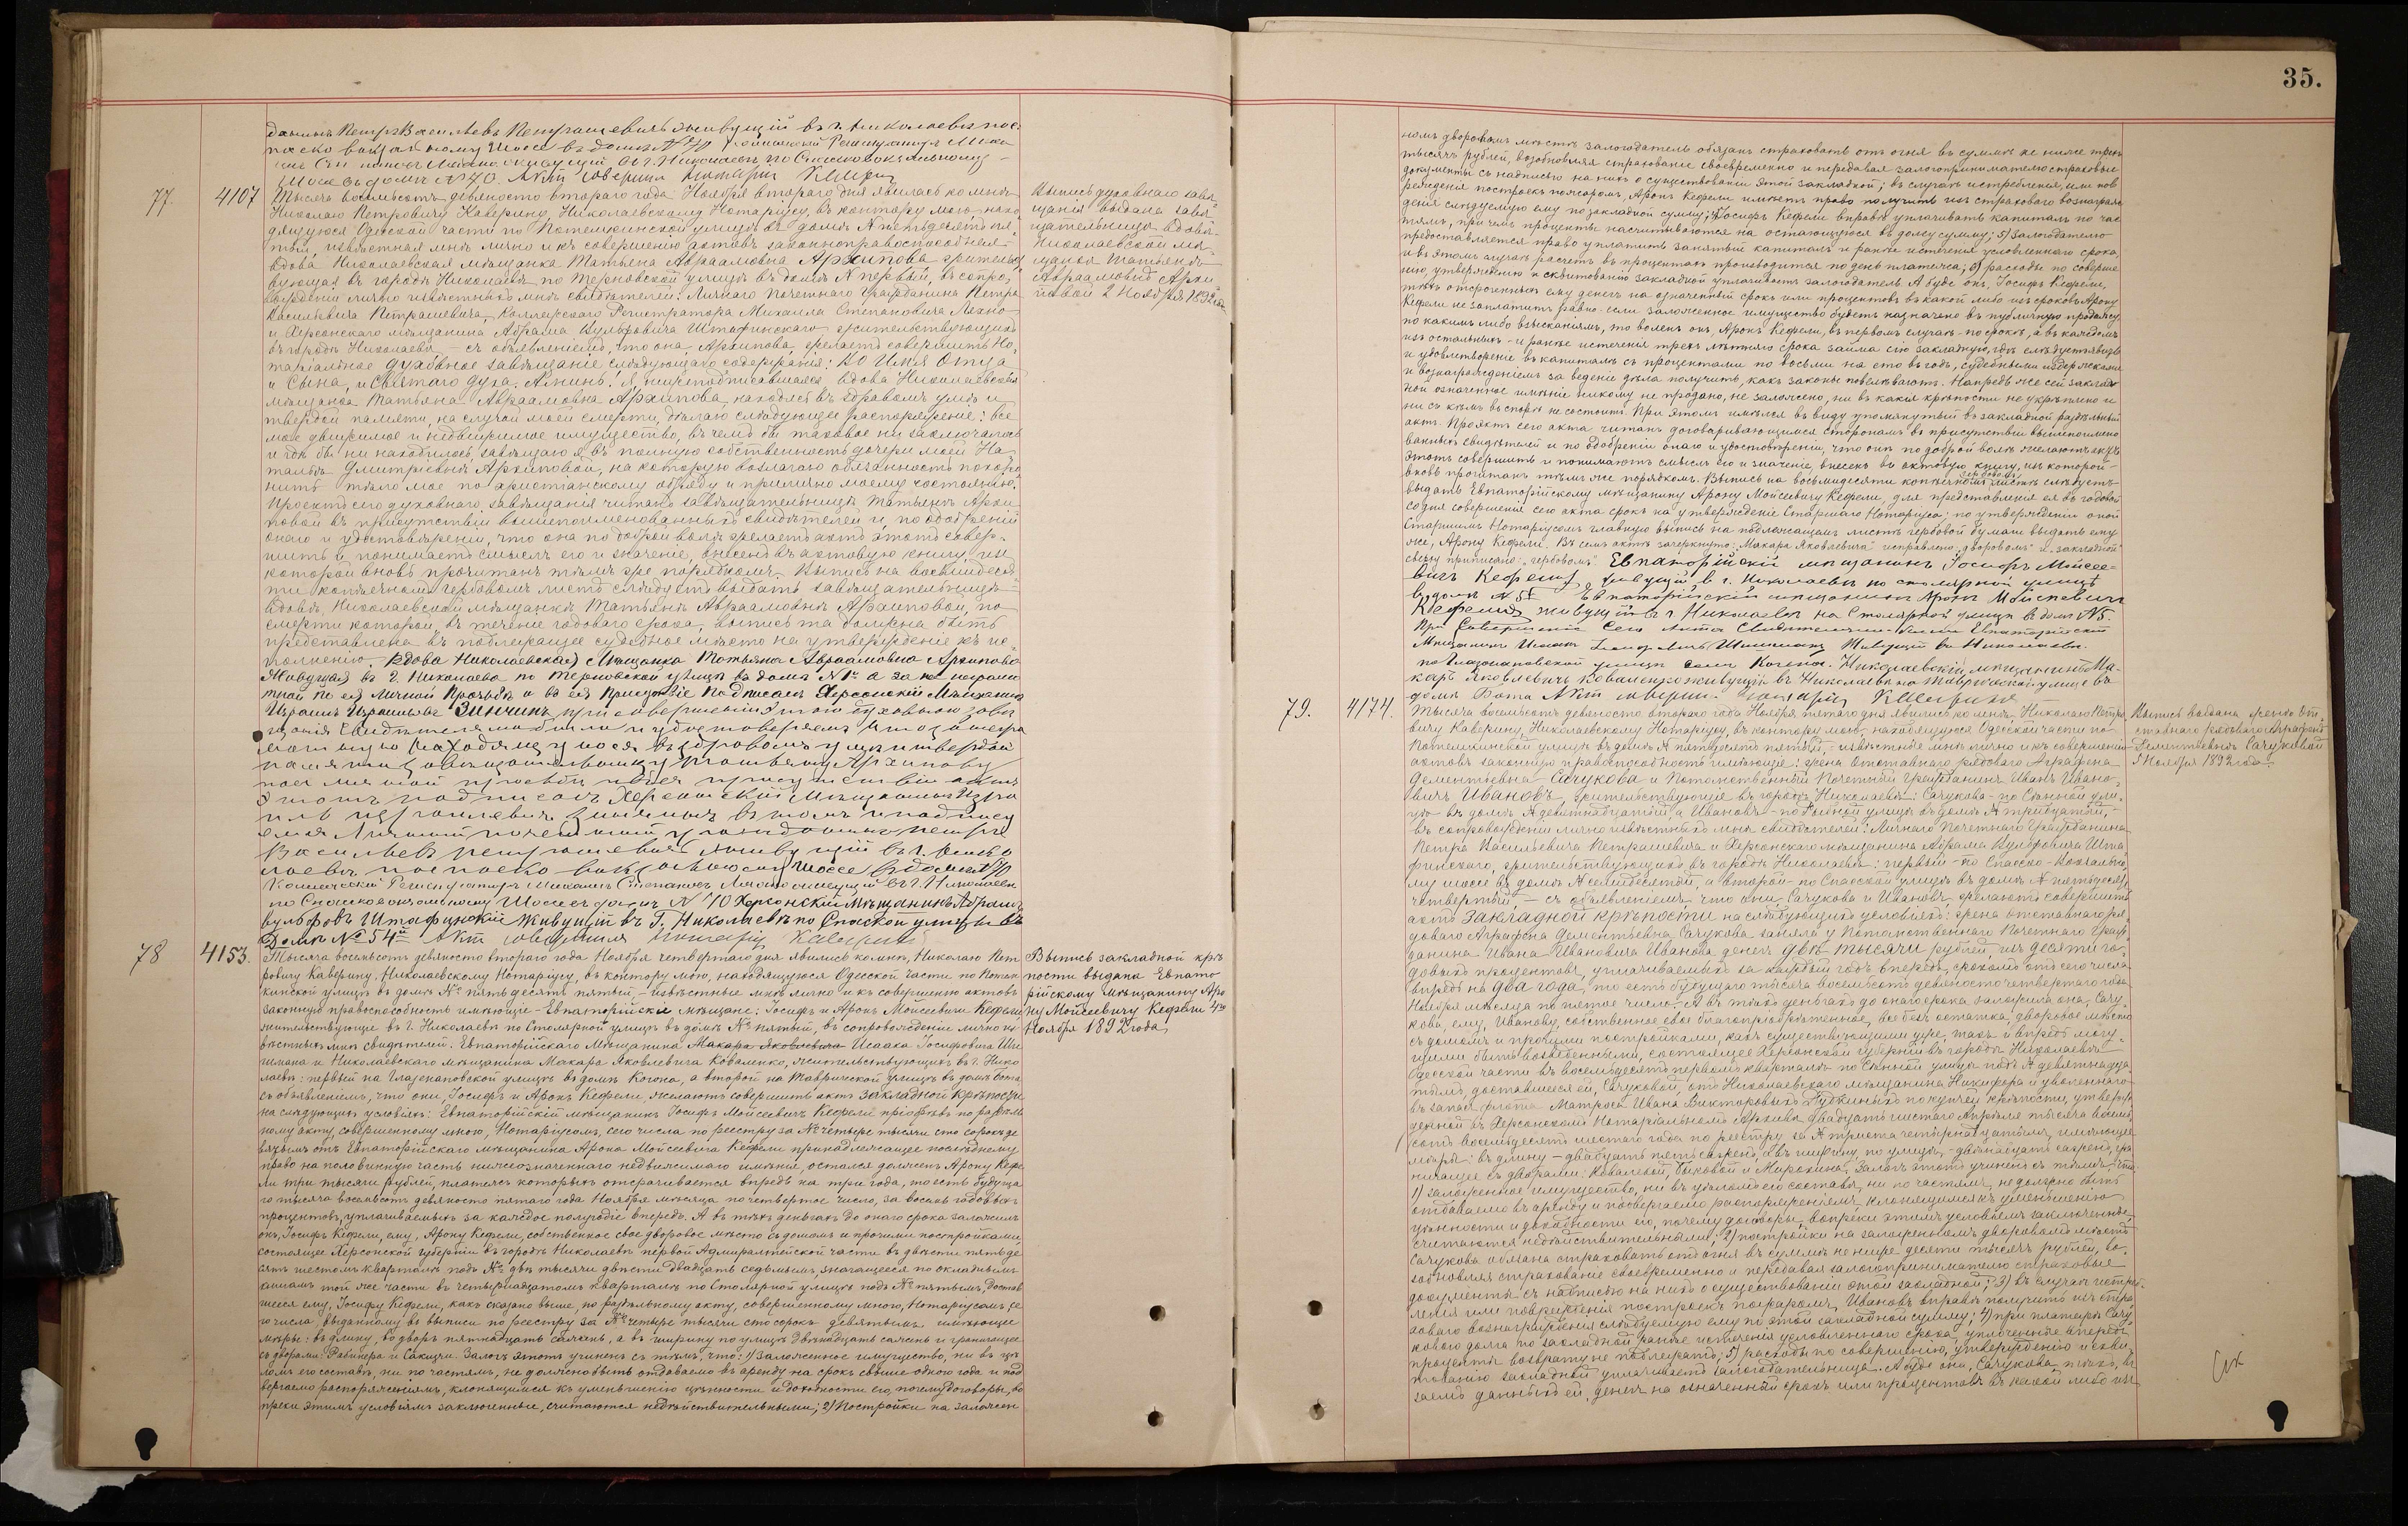 35.
данинъ Петръ Васильевъ Петрашевичъ живущій въ г. Николаевѣ по с-
паско вокзальному шоссе въ домѣ № 70
шоссе въ домѣ № 70. Актъ совершилъ Нотаріусъ Каверинъ
77.
4107
Тысяча восемьсотъ девяносто втораго года Ноября втораго дня явилась ко мнѣ
Николаю Петровичу Каверину, Николаевскому Нотаріусу, въ контору мою, нахо
дящуюся Одесской части по Потемкинской улицѣ въ домѣ № пятьдесятъ пя-
тый, извѣстная мнѣ лично и къ совершенію актовъ законноправоспособная
вдова Николаевская мѣщанка Татьяна Авраамовна Архипова жительс
вующая въ городѣ Николаевѣ по Терновской улицѣ въ домѣ № первый, въ сопро
вожденіи лично извѣстныхъ мнѣ свидѣтелей: Личнаго Почетнаго Гражданина Петра
Васильевича Петрашевича, Коллежскаго Регистратора Михаила Степановича Махно
и Херсонскаго мѣщанина Абрама Вульфовича Штафинскаго, жительствующихъ
въ городѣ Николаевѣ, – съ объявленіемъ, что она, Архипова, желаетъ совершить Но-
таріальное духовное завѣщаніе слѣдующаго содержанія: Во Имя Отца
и Сына, и Святаго Духа. Аминь. Я, нижеподписавшаяся вдова Николаевская
мѣщанка Татьяна Авраамовна Архипова, находясь въ здравомъ умѣ и
твердой памяти, на случай моей смерти, дѣлаю слѣдующее распоряженіе: все
мое движимое и недвижимое имущество, въ чемъ бы таковое ни заключалось
и гдѣ бы ни находилось, завѣщаю я въ полную собственность дочери моей На-
тальѣ Дмитріевнѣ Архиповой, на которую возлагаю обязанность похоро
нить тѣло мое по христіанскому обряду и прилично моему состоянію.
Проектъ сего духовнаго завѣщанія читанъ завѣщательницѣ Татьянѣ Архи-
повой въ присутствіи вышепоименованныхъ свидѣтелей и, по одобреніи
онаго и удостовѣреніи, что она по доброй волѣ желаетъ актъ этотъ совер-
шить и понимаетъ смыслъ его и значеніе, внесенъ въ актовую книгу, изъ
которой вновь прочитанъ тѣмъ же порядкомъ. Выпись на восьмидеся-
ти копѣечномъ гербовомъ листѣ слѣдуетъ выдать завѣщательницѣ
вдовѣ, Николаевской мѣщанкѣ Татьянѣ Авраамовнѣ Архиповой, по
смерти которой, въ теченіе годоваго срока, выпись та должна быть
представлена въ подлежащее судебное мѣсто на утвержденіе къ ис-
полненію. Вдова Николаевская Мѣщанка Татьяна Авраамовна Архипова
Живущая въ г. Николаевѣ по Терновской улицѣ въ домѣ № 1й а за не грамо
тной по ея личной просьбѣ и въ ея присутствіе подписалъ Херсонскій Мѣщанинъ
Израиль Израильевъ Зинчинъ при совершеніи этого духовнаго завѣ
щанія свидѣтелями были и удостовѣряемъ
Васильевъ Петрашевичъ живущій въ г. Нико
лаевѣ по спаско вокзальному шоссе въ домѣ № 70
Коллежскій Регистраторъ Михаилъ Степановъ Махно живущій въ г. Николаевѣ
по Спасковокзальному Шоссе въ домѣ № 70 Херсонскій Мѣщанинъ Абрамъ
вульфовъ Штафинскій Живущій въ Г. Николаевѣ по Спаской улицы въ
Домѣ № 54й Актъ совершилъ Нотаріусъ Каверинъ
Выпись духовнаго завѣ
щанія выдана завѣ
щательницѣ вдовѣ
Николаевской мѣ-
щанкѣ Татьянѣ
Авраамовнѣ Архи
повой 2 Ноября 1892 года
78
4153.
Тысяча восемьсотъ девяносто втораго года Ноября четвертаго дня явились ко мнѣ, Николаю Пет
ровичу Каверину, Николаевскому Нотаріусу, въ контору мою, находящуюся Одесской части по Потем
кинской улицѣ въ домѣ № пятьдесятъ пятый, – извѣстные мнѣ лично и къ совершенію актовъ
законную правоспособность имѣющіе – Евпаторійскіе мѣщане: Іосифъ и Аронъ Мойсеевичи Кефели,
жительствующіе въ г. Николаевѣ по Столярной улицѣ въ домѣ № пятый, въ сопровожденіи лично из
вѣстныхъ мнѣ свидѣтелей: Евпаторійскаго Мѣщанина Макара Яковлевича Исаака Іосифовича Ши
шмана и Николаевскаго мѣщанина Макара Яковлевича Коваленко, жительствующихъ въ г. Нико
лаевѣ: первый на Глазенаповской улицѣ въ домѣ Когена, а второй на Таврической улицѣ въ домѣ Бота
съ объявленіемъ, что они, Іосифъ и Аронъ Кефели, желаютъ совершить актъ закладной крѣпости
на слѣдующихъ условіяхъ: Евпаторійскій мѣщанинъ Іосифъ Мойсеевичъ Кефели пріобрѣвъ по раздѣль
ному акту, совершенному мною, Нотаріусомъ, сего числа по реестру за № четыре тысячи сто сорокъ де
вятымъ отъ Евпаторійскаго мѣщанина Арона Мойсеевича Кефели принадлежащее послѣднему
право на половинную часть нижеозначеннаго недвижимаго имѣнія, остался долженъ Арону Кефе
ли три тысячи рублей, платежъ которыхъ отсрачивается впредь на три года, то есть будуща
го тысяча восемьсотъ девяносто пятаго года Ноября мѣсяца по четвертое число, за восемь годовыхъ
процентовъ, уплачиваемыхъ за каждое полугодіе впередъ. А въ тѣхъ деньгахъ до онаго срока заложилъ
онъ, Іосифъ Кефели, ему, Арону Кефели, собственное свое дворовое мѣсто съ домомъ и прочими постройками,
состоящее Херсонской губерніи въ городѣ Николаевѣ первой Адмиралтейской части въ двѣсти пятьде
сятъ шестомъ кварталѣ подъ № двѣ тысячи двѣсти двадцать седьмымъ, значащееся по окладнымъ
книгамъ той же части въ четырнадцатомъ кварталѣ по Столярной улицѣ подъ № пятымъ, достав
шееся ему, Іосифу Кефели, какъ сказано выше, по раздѣльному акту, совершенному мною, Нотаріусомъ, се
го числа, выданному въ выписи по реестру за № четыре тысячи сто сорокъ девятымъ имѣющее
мѣры: въ длину, во дворъ пятнадцать саженъ, а въ ширину по улицѣ двѣнадцать саженъ и граничащее
съ дворами: Рабинера и Сакизчи. Залогъ этотъ учиненъ съ тѣмъ, что: 1) Заложенное имущество, ни въ цѣ
ломъ его составѣ, ни по частямъ, не должно быть отдаваемо въ аренду на срокъ свыше одного года и под
вергаемо распоряженіямъ, клонящимся къ уменьшенію цѣнности и доходности его, почему договоры, во
преки этимъ условіямъ заключенные, считаются недѣйствительными; 2) Постройки на заложен
Выпись закладной крѣ
пости выдана Евпато
рійскому мѣщанину Аро
ну Мойсеевичу Кефели 4го
Ноября 1892 года
номъ дворовомъ мѣстѣ залогодатель обязанъ страховать отъ огня въ суммѣ не ниже трехъ
тысячъ рублей, возобновляя страхованіе своевременно и передавая залогопринимателю страховые
документы съ надписью на нихъ о существованіи этой закладной; въ случаѣ истребленія, или пов
режденія построекъ пожаромъ, Аронъ Кефели имѣетъ право получить изъ страховаго вознагражд
денія слѣдуемую ему по закладной сумму; Іосифъ Кефели вправѣ уплачивать капиталъ по час
тямъ, при чемъ проценты насчитываются на остающуюся въ долгу сумму; 5) Залогодателю
предоставляется право уплатить занятый капиталъ и ранѣе истеченія условленнаго срока,
и въ этомъ случаѣ расчетъ въ процентахъ производится по день платежа; 6) расходы по соверше
нію, утвержденію и сквитованію закладной уплачиваетъ залогодатель. А буде онъ, Іосифъ Кефели,
тѣхъ отсроченныхъ ему денегъ на означенный срокъ или процентовъ въ какой либо изъ сроковъ Арону
Кефели не заплатитъ равно если заложенное имущество будетъ назначено въ публичную продажу
по какимъ либо взысканіямъ, то воленъ онъ, Аронъ Кефели, въ первомъ случаѣ – по срокѣ, а въ каждомъ
изъ остальныхъ – и ранѣе истеченія трехъ лѣтняго срока займа сію закладную, гдѣ слѣдуетъ явить
и удовлетвореніе въ капиталѣ съ процентами по восьми на сто въ годъ, судебными издержками
и вознагражденіемъ за веденіе дѣла получить, какъ законы повелѣваютъ. Напредь же сей заклад
ной означенное имѣніе никому не продано, не заложено, ни въ какія крѣпости не укрѣплено и
ни съ кѣмъ въ спорѣ не состоитъ. При этомъ имѣлся въ виду упомянутый въ закладной раздѣльный
актъ. Проэктъ сего акта читанъ договаривающимся сторонамъ въ присутствіи вышепоимено
ванныхъ свидѣтелей и по одобреніи онаго и удостовѣреніи, что они по доброй волѣ желаютъ актъ
этотъ совершить и понимаютъ смыслъ его и значеніе, внесенъ въ актовую книгу, изъ которой
вновь прочитанъ тѣмъ же порядкомъ. Выпись на восьмидесяти копѣечномъ гербовомъ листѣ слѣдуетъ
выдать Евпаторійскому мѣщанину Арону Мойсеевичу Кефели, для представленія ея въ годовой
со дня совершенія сего акта срокъ на утвержденіе Старшаго Нотаріуса; по утвержденіи оной
Старшимъ Нотаріусомъ главную выпись на подлежащемъ листѣ гербовой бумаги выдать ему
же, Арону Кефели. Въ семъ актѣ зачеркнуто: „Макара Яковлевича" исправлено: „дворовомъ" и „закладной"
сверху приписано: „гербовомъ" Евпаторійскій мѣщанинъ Іосифъ Мойсее-
вичъ Кефели, живущій въ г. Николаевѣ по столярной улицѣ
въ домѣ № 5й Евпаторійскій мѣщанинъ Аронъ Мойсеевичъ
Кефели живущій въ г Николаевѣ на Столярной улицѣ въ домѣ № 5.
При Совершеніе Сего Акта Свидѣтелями были Евпаторійскій
Мѣщанинъ Исаакъ Іосифовичъ Шишманъ Живущій въ Николаевѣ.
по Глазенаповской улицы домъ Когена. Николаевскій мѣщанинъ Ма-
каръ Яковлевичъ Коваленко живущій въ Николаевѣ на Таврической улице въ
домѣ Бота Актъ совершилъ Нотаріусъ Каверинъ
79.
4174.
Тысяча восемьсотъ девяносто втораго года Ноября пятаго дня явились ко мнѣ, Николаю Петро
вичу Каверину, Николаевскому Нотаріусу, въ контору мою, находящуюся Одесской части по
Потемкинской улицѣ въ домѣ № пятьдесятъ пятый, – извѣстные мнѣ лично и къ совершенію
актовъ законную правоспособность имѣющіе: жена Отставнаго рядоваго Аграфена
Дементьевна Сачукова и Потомственный Почетный Гражданинъ Иванъ Ивано-
вичъ Ивановъ, жительствующіе въ городѣ Николаевѣ: Сачукова – по Сѣнной ули-
цѣ въ домѣ № девятнадцатый, а Ивановъ – по Рыбной улицѣ въ домѣ № тридцатый, –
въ сопровожденіи лично извѣстныхъ мнѣ свидѣтелей: Личнаго Почетнаго Гражданина
Петра Васильевича Петрашевича и Херсонскаго мѣщанина Абрама Вульфовича Шта
финскаго, жительствующихъ въ городѣ Николаевѣ: первый – по Спасско-Вокзально
му шоссе въ домѣ № семидесятый, а второй – по Спасской улицѣ въ домѣ № пятьдесятъ
четвертый – съ объявленіемъ, что они, Сачукова и Ивановъ, желаютъ совершить
актъ закладной крѣпости на слѣдующихъ условіяхъ: жена отставнаго ря-
доваго Аграфена Дементьевна Сачукова заняла у Потомственнаго Почетнаго Граж-
данина Ивана Ивановича Иванова денегъ двѣ тысячи рублей, изъ десяти го-
довыхъ процентовъ, уплачиваемыхъ за каждый годъ впередъ, срокомъ отъ сего числа
впредь на два года, то есть будущаго тысяча восемьсотъ девяносто четвертаго года
Ноября мѣсяца по пятое число. А въ тѣхъ деньгахъ до онаго срока заложила она, Сачу-
кова, ему, Иванову, собственное свое благопріобрѣтенное, все безъ остатка, дворовое мѣсто
съ домомъ и прочими постройками, какъ существующими уже, такъ и впредь могу-
щими быть возведенными, состоящее Херсонской губерніи въ городѣ Николаевѣ
Одесской части въ восемьдесятъ первомъ кварталѣ по Сѣнной улицѣ подъ № девятнадца-
тымъ, доставшееся ей, Сачуковой, отъ Николаевскаго мѣщанина Никифора и уволеннаго
въ запасъ флота Матроса Ивана Викторовыхъ по купчей крѣпости, утверж
денной въ Херсонскомъ Нотаріальномъ Архивѣ двадцать шестаго Апрѣля тысяча восемь
сотъ восемьдесятъ шестаго года по реестру за № триста четырнадцатымъ, имѣющее
мѣры: въ длину – двадцать пять саженъ, а въ ширину, по улицѣ, – двѣнадцать саженъ, гра
ничащее съ дворами: Ковалевой, Быковой и Мирохина. Залогъ этотъ учиненъ съ тѣмъ, что:
1) заложенное имущество, ни въ цѣломъ его составѣ, ни по частямъ, не должно быть
отдаваемо въ аренду и подвергаемо распоряженіямъ, клонящимся къ уменьшенію
цѣнности и доходности его, почему договоры, вопреки этимъ условіямъ заключенные,
считаются недѣйствительными; 2) постройки на заложенномъ дворовомъ мѣстѣ
Сачукова обязана страховать отъ огня въ суммѣ не ниже десяти тысячъ рублей, во-
зобновляя страхованіе своевременно и передавая залогопринимателю страховые
документы съ надписью на нихъ о существованіи этой закладной; 3) въ случаѣ истреб-
ленія или поврежденія построекъ пожаромъ, Ивановъ вправѣ получить изъ стра-
ховаго вознагражденія слѣдуемую ему по этой закладной сумму; 4) при платежѣ Сачу-
ковою долга по закладной ранѣе истеченія условленнаго срока, уплоченные впередъ
проценты возврату не подлежатъ; 5) расходы по совершенію, утвержденію и скви-
тованію закладной уплачиваетъ залогодательница. А буде она, Сачукова, тѣхъ, въ
заемъ данныхъ ей, денегъ на означенный срокъ или процентовъ въ какой либо изъ
Выпись выдана женѣ От-
ставнаго рядоваго Аграфенѣ
Дементьевнѣ Сачуковой
5 Ноября 1892 года.